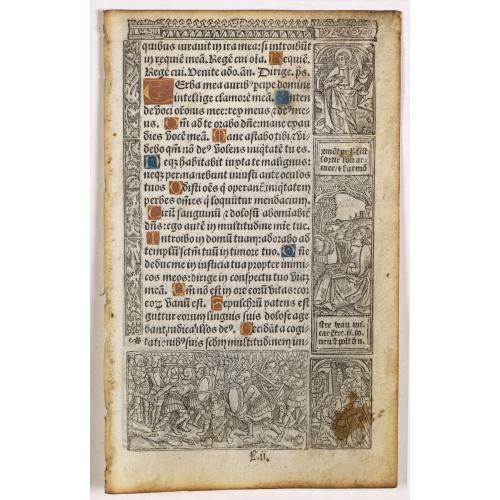 quibus iuraui in ira mea: si introibūt
in requiē meā. Regē cui oīa. Requiē.
Regē cui. Venite ado. an. Dirige. p̄s.
Erba mea auribꝰ percipe domine
intellige clamorē meā. Inten
de voci orōnis mee: rex meus ⁊ deꝰ me
us. Qm̄ ad te orabo dn̄e: mane exau
dies vocē meā. Mane astabo tibi ⁊ vi
debo qm̄ nō deꝰ volens iniq̇tatē tu es.
Neqꝫ habitabit iuxta te malignus:
neqꝫ permanebunt iniusti ante oculos
tuos Odisti oēs q̇ operant̄ iniq̇tatem
perdes om̄es q̇ loquūtur mendacium.
Cirū sanguinū ⁊ dolosū abomīabit̄
dn̄s: ego autē in multitudine mie tue.
Introibo in domū tuam: adorabo ad
templū sctm̄ tuū in timore tuo. Dn̄e
deduc me in iusticia tua propter inimi
cos meos: dirige in conspectu tuo viaꝫ
meā. Qm̄ nō est in ore eorū vitas: cor
eoꝝ vanū est. Sepulchrū patens est
guttur eorum linguis suis dolose age
bant, iudica illos deꝰ. Decidāt a cogi
tationibꝰ suis scdm̄ multitudinem im
f.ii.